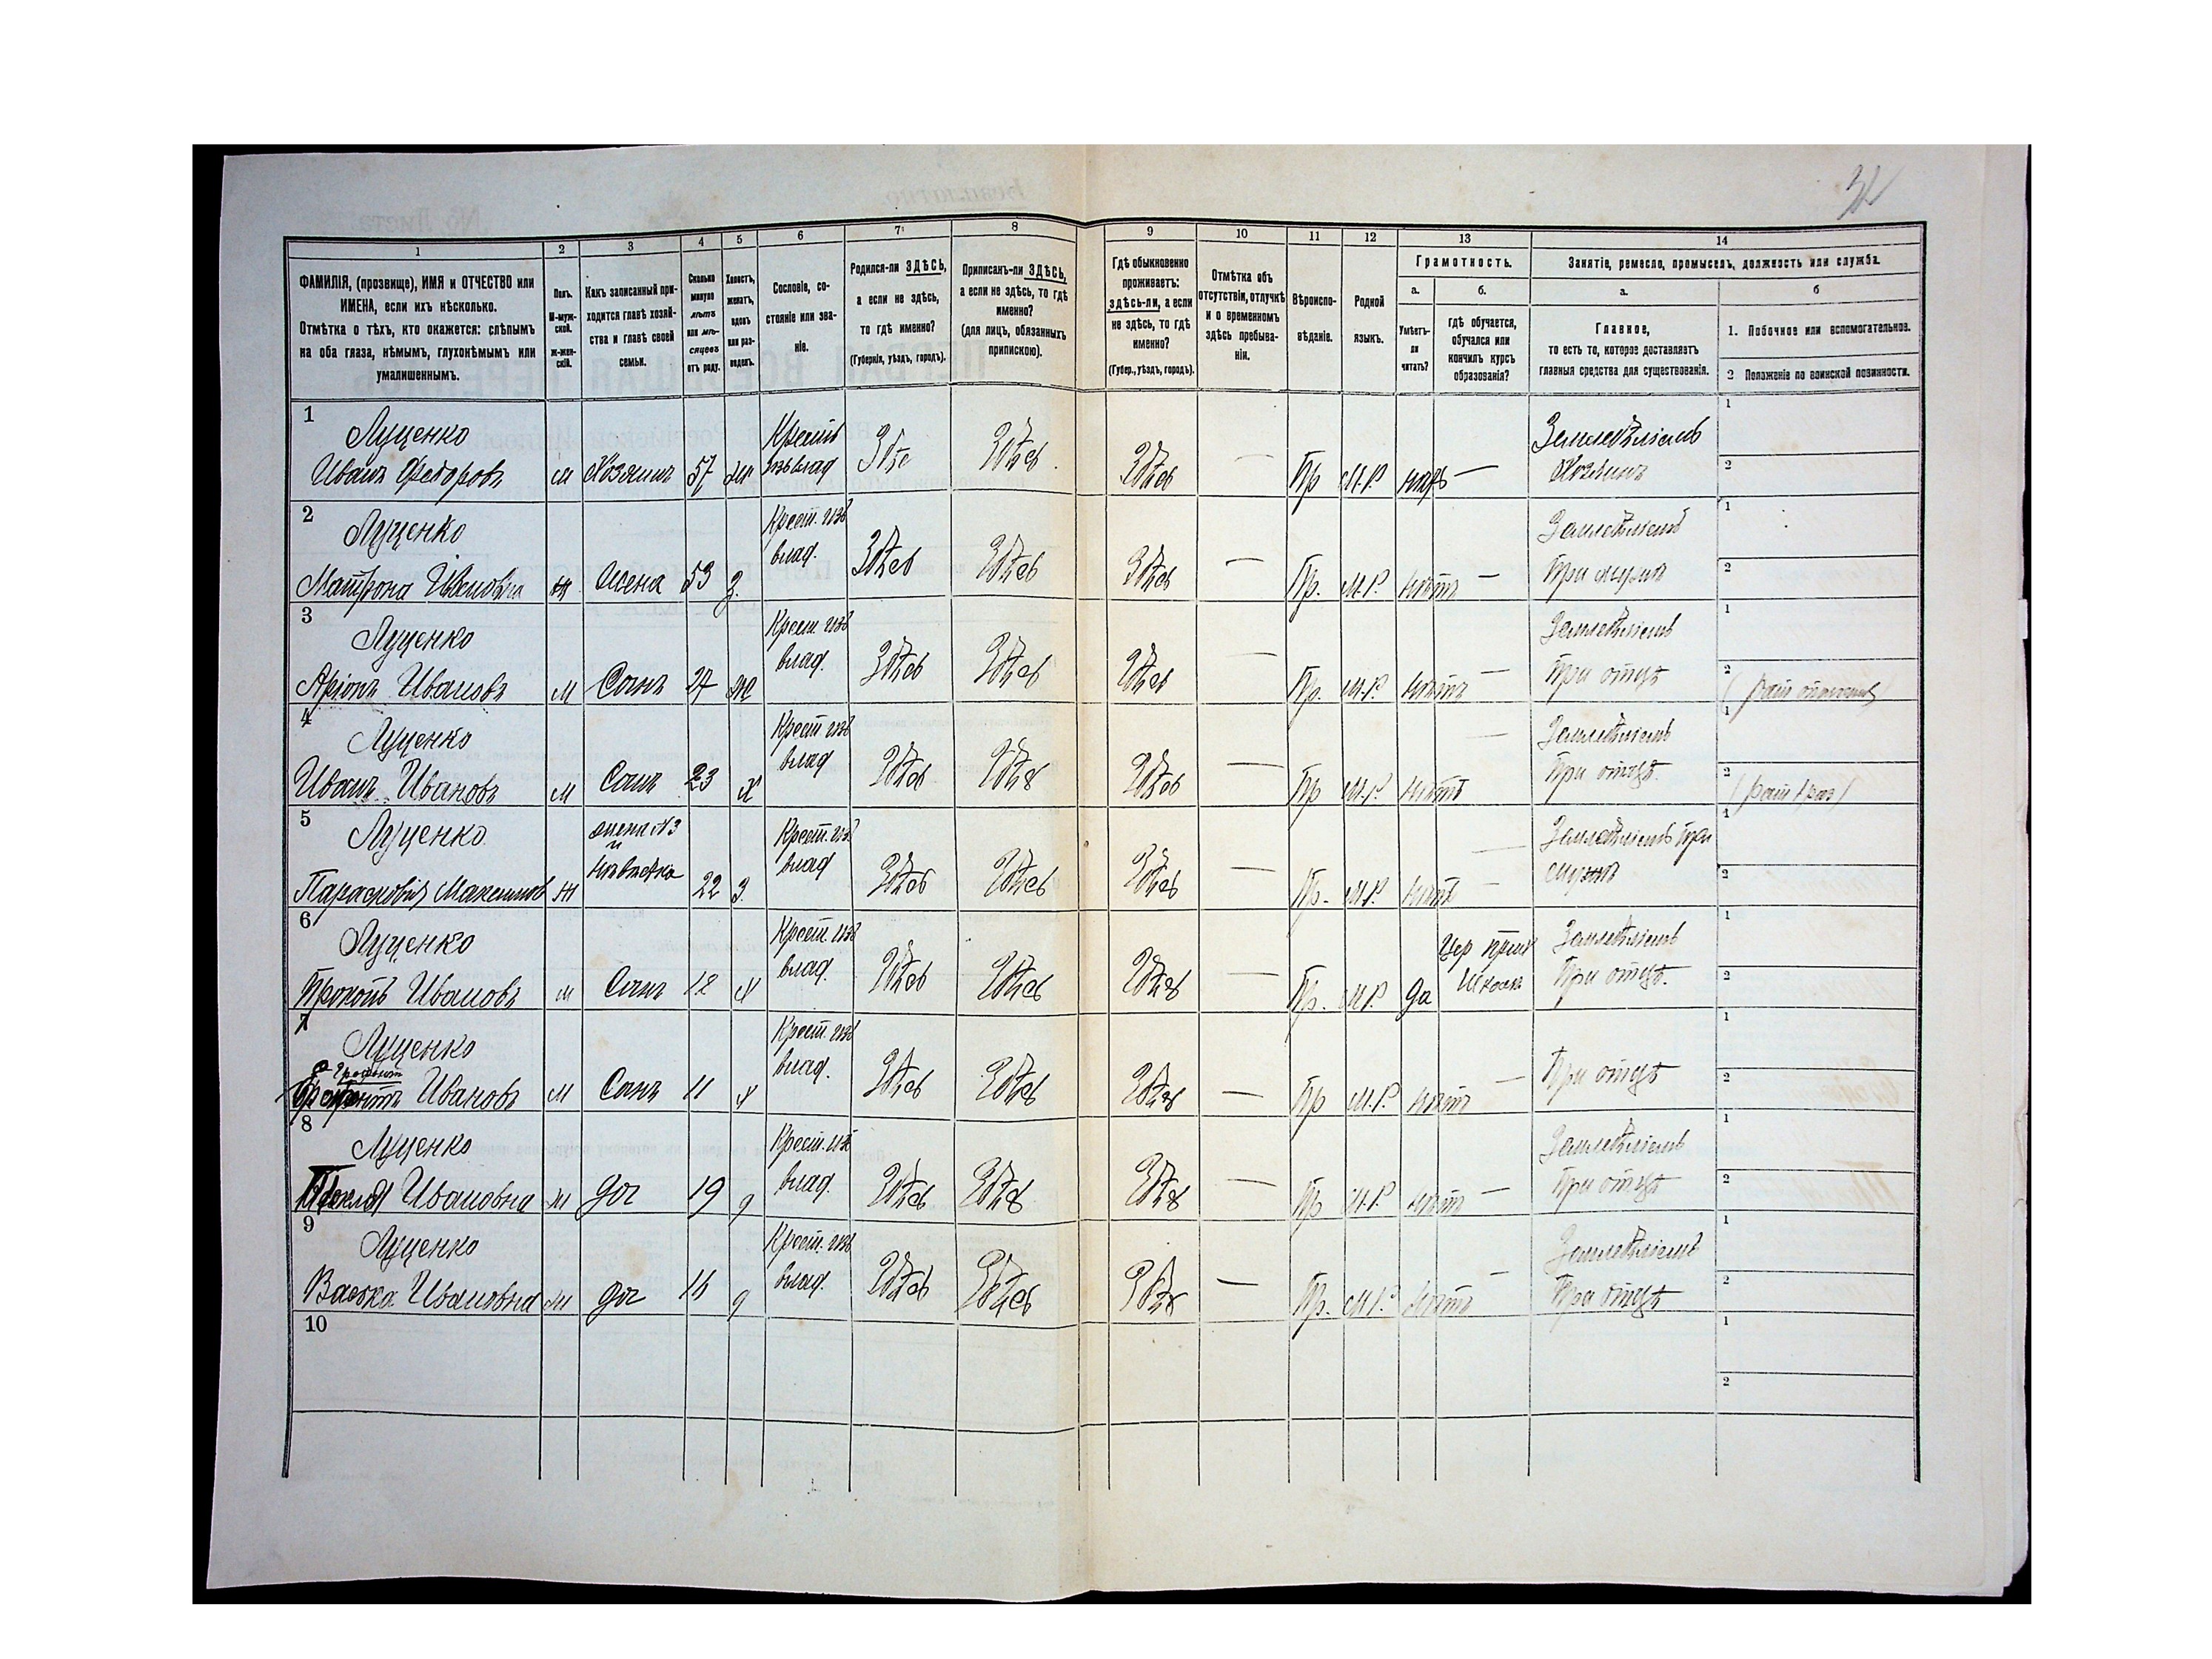 32
1 2 3 4 5 6 7 8 9 10 11 12 13 14
ФАМИЛІЯ, (прозвище), ИМЯ и ОТЧЕСТВО или
ИМЕНА, если ихъ нѣсколько.
Отмѣтка о тѣхъ, кто окажется: слѣпымъ
на оба глаза, нѣмымъ, глухонѣмымъ или
умалишеннымъ.
Полъ.
М-муж-
ской.
ж-жен-
скій.
Какъ записанный при-
ходится главѣ хозяй-
ства и главѣ своей
семьи.
Сколько
минуло
лѣтъ
или мѣ-
сяцевъ
отъ роду.
Холостъ,
женатъ,
вдовъ
или раз-
веденъ.
Сословіе, со-
стояніе или зва-
ніе.
Родился-ли ЗДѢСЬ,
а если не здѣсь,
то гдѣ именно?
(Губернія, уѣздъ, городъ).
Приписанъ-ли ЗДѢСЬ,
а если не здѣсь, то гдѣ
именно?
(для лицъ, обязанныхъ
припискою).
Гдѣ обыкновенно
проживаетъ:
здѣсь-ли, а если
не здѣсь, то гдѣ
именно?
(Губер., уѣздъ, городъ).
Отмѣтка объ
отсутствіи, отлучкѣ
и о временномъ
здѣсь пребыва-
ніи.
Вѣроиспо-
вѣданіе.
Родной
языкъ.
Грамотность.
а.
Умѣетъ-
ли
читать?
б.
гдѣ обучается,
обучался или
кончилъ курсъ
образованія?
Занятіе, ремесло, промыселъ, должность или служба.
а.
Главное,
то есть то, которое доставляетъ
главныя средства для существованія.
б
1. Побочное или вспомогательное.
2 Положеніе по воинской повинности.
1
Луценко Крест Земледѣліемъ 1
Иванъ Федоровъ м Хозяинъ 57 ж изъ влад Здѣс Здѣсь Здѣсь — Пр М.Р. нѣтъ — Хозяинъ 2
2
Луценко Крест. изъ Земледѣліемъ 1
Матрона Ивановна ж Жена 53 з. влад. Здѣсь Здѣсь Здѣсь — Пр. М.Р. нѣтъ — При мужѣ 2
3
Луценко Крест. изъ Земледѣліемъ 1
Аріонъ Ивановъ м Сынъ 27 ж влад. Здѣсь Здѣсь Здѣсь — Пр. М.Р. нѣтъ — При отцѣ 2
4
Луценко Крест изъ Земледѣліемъ 1
Иванъ Ивановъ м Сынъ 23 х влад Здѣсь Здѣсь Здѣсь — Пр М.Р. нѣтъ — При отцѣ. 2
5
Луценко жена №3 Крест. изъ Земледѣліемъ при 1
и
Парасковія Максимов ж невѣстка 22 з. влад Здѣсь Здѣсь Здѣсь — Пр. М.Р. нѣтъ — мужѣ 2
6
Луценко Крест. изъ Цер прих Земледѣліемъ 1
Прокопъ Ивановъ м Сынъ 12 х влад. Здѣсь Здѣсь Здѣсь — Пр. М.Р. да школѣ При отцѣ. 2
7
Луценко Крест. изъ 1
Ивановъ м Сынъ 11 х влад. Здѣсь Здѣсь Здѣсь — Пр М.Р. нѣтъ — При отцѣ 2
8
Луценко Крест. изъ Земледѣліемъ 1
Ивановна ж доч 19 д влад. Здѣсь Здѣсь Здѣсь — Пр М.Р. нѣтъ — При отцѣ 2
9
Луценко Крест. изъ Земледѣліемъ 1
Васка Ивановна ж доч 16 д влад. Здѣсь Здѣсь Здѣсь — Пр. М.Р. нѣтъ — При отцѣ 2
10 1
2